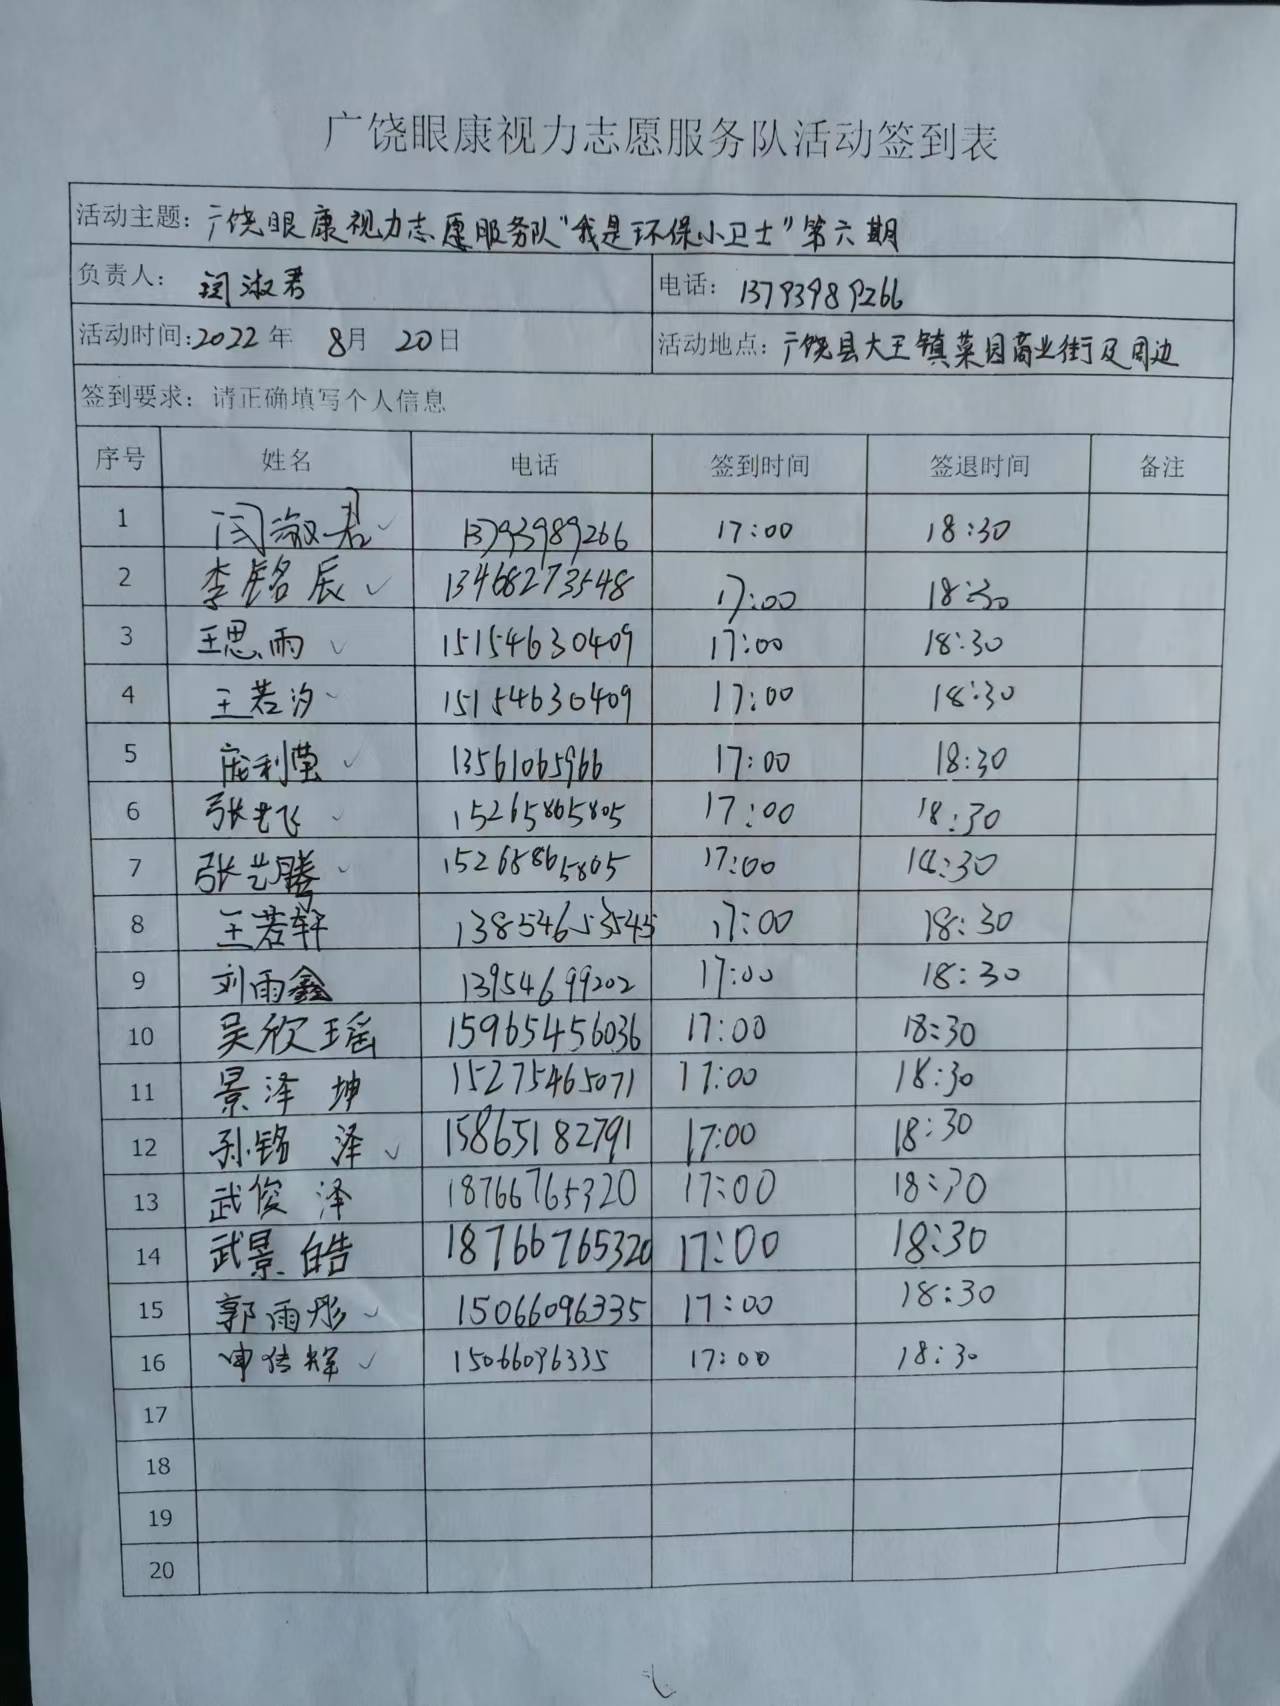 广饶眼康视力志愿服务队活动签到表
活动主题: 广饶眼康视力志愿服务队“我是环保小卫士”第六期
负责人: 闫淑君 电话: 13793989266
活动时间: 2022年 8月 20日 活动地点: 广饶县大王镇菜园商业街及周边
签到要求: 请正确填写个人信息
序号 姓名 电话 签到时间 签退时间 备注
1 闫淑君 ✓ 13793989266 17:00 18:30
2 李铭辰 ✓ 13468273548 17:00 18:30
3 王思雨 ✓ 15154630409 17:00 18:30
4 王若汐 ✓ 15154630409 17:00 18:30
5 庞利莹 ✓ 13561065966 17:00 18:30
6 张艺飞 ✓ 15265865805 17:00 18:30
7 张艺腾 ✓ 15265865805 17:00 18:30
8 王若轩 13854653545 17:00 18:30
9 刘雨鑫 13954699202 17:00 18:30
10 吴欣瑶 15965456036 17:00 18:30
11 景泽坤 15275465071 17:00 18:30
12 孙铭泽 ✓ 15865182791 17:00 18:30
13 武俊泽 18766765320 17:00 18:30
14 武景皓 18766765320 17:00 18:30
15 郭雨彤 ✓ 15066096335 17:00 18:30
16 ✓ 15066096335 17:00 18:30
17
18
19
20